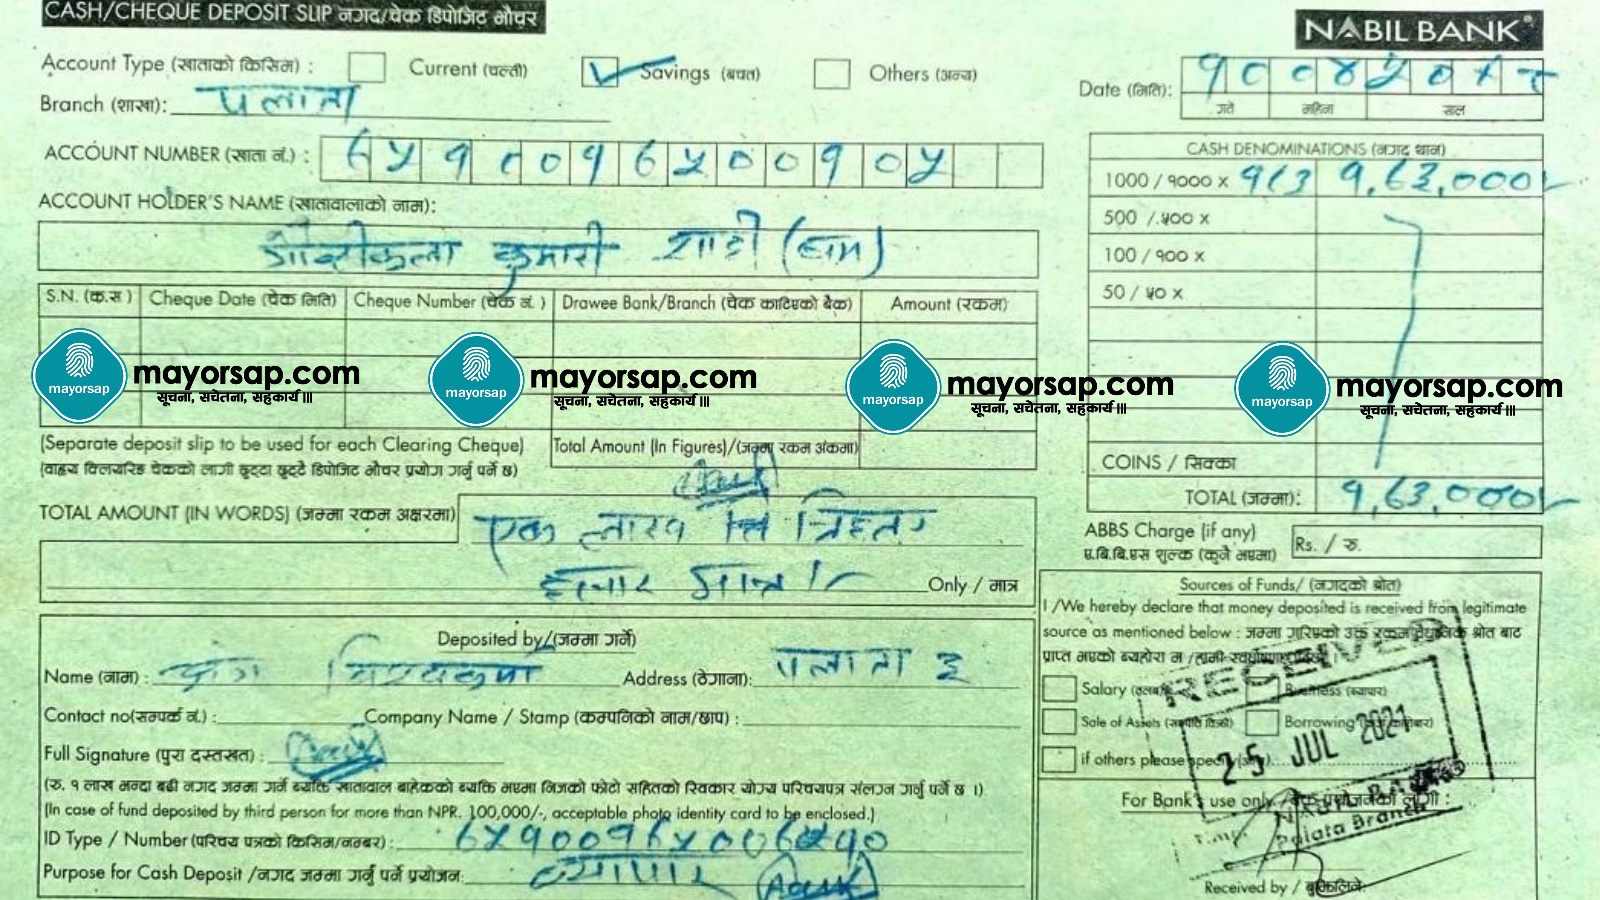 CASH/CHEQUE DEPOSIT SLIP नगद/चेक डिपोजिट भौचर
NABIL BANK
Account Type (खाताको किसिम) : Current (चल्ती) Savings (बचत) Others (अन्य)
Date (मिति):
गते महिना साल
Branch (शाखा): पलाता
ACCOUNT NUMBER (खाता नं.) :
CASH DENOMINATIONS (नगद थान)
1000 / १००० x १,६३,०००/-
ACCOUNT HOLDER'S NAME (खातावालाको नाम):
500 / ५०० x
कुमारी शाही
100 / १०० x
50 / ५० x
S.N. (क्र.स) Cheque Date (चेक मिति) Cheque Number (चेक नं.) Drawee Bank/Branch (चेक काटिएको बैंक) Amount (रकम)
mayorsap mayorsap.com
सूचना, सचेतना, सहकार्य॥
mayorsap mayorsap.com
सूचना, सचेतना, सहकार्य॥
mayorsap mayorsap.com
सूचना, सचेतना, सहकार्य॥
mayorsap mayorsap.com
सूचना, सचेतना, सहकार्य॥
(Separate deposit slip to be used for each Clearing Cheque)
Total Amount (In Figures)/(जम्मा रकम अंकमा)
(वाह्य क्लियरिङ चेकको लागी छुट्टा छुट्टै डिपोजिट भौचर प्रयोग गर्नु पर्ने छ)
COINS / सिक्का
TOTAL (जम्मा): १,६३,०००/-
TOTAL AMOUNT (IN WORDS) (जम्मा रकम अक्षरमा) एक लाख
हजार मात्र ।- Only / मात्र
ABBS Charge (if any)
ए.बि.बि.एस शुल्क (कुनै भएमा) Rs. / रु.
Sources of Funds/ (नगदको श्रोत)
I /We hereby declare that money deposited is received from legitimate
source as mentioned below : जम्मा गरिएको उक्त रकम वैधानिक श्रोत बाट
प्राप्त भएको ब्यहोरा म /हामी
Salary Business (ब्यापार)
Sale of Assets (सम्पति बिक्री) Borrowing
if others please specify
RECEIVED
25 JUL 2021
Palata Branch
For Bank's use only / बैंक प्रयोजनको लागी :
Received by /
Deposited by/(जम्मा गर्ने)
Name (नाम) : Address (ठेगाना): पलाता ३
Contact no(सम्पर्क नं.) : Company Name / Stamp (कम्पनिको नाम/छाप) :
Full Signature (पुरा दस्तखत) :
(रु. १ लाख भन्दा बढी नगद जम्मा गर्ने ब्यक्ति खातावाल बाहेकको ब्यक्ति भएमा निजको फोटो सहितको स्विकार योग्य परिचयपत्र संलग्न गर्नु पर्ने छ ।)
(In case of fund deposited by third person for more than NPR. 100,000/-, acceptable photo identity card to be enclosed.)
ID Type / Number (परिचय पत्रको किसिम/नम्बर) :
Purpose for Cash Deposit /नगद जम्मा गर्नु पर्ने प्रयोजन: व्यापार